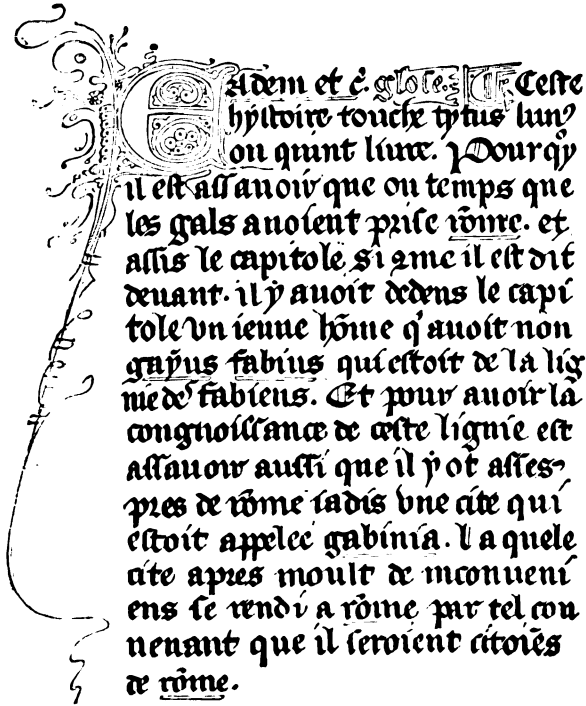 EAdem et c̄. glose. Ceste
hystoire touche tytus liuiꝰ
ou quint liure. Pour qͦy
il est assauoir que ou temps que
les gals auoient prise rōme. et
assis le capitole si 2me il est dit
deuant. il ẏ auoit dedens le capi
tole vn ieune hōme q' auoit non
gaẏus fabius qui estoit de la lig
nie des fabiens. Et pour auoir la
congnoissance de ceste lignie est
assauoir aussi que il ẏ ot̄ asses
pres de rōme iadis vne cite qui
estoit appelee gabinia. la quele
cite apres moult de inconueni
ens se rendi a rōme par tel cou
uenant que il seroient citoiēs
de rōme.